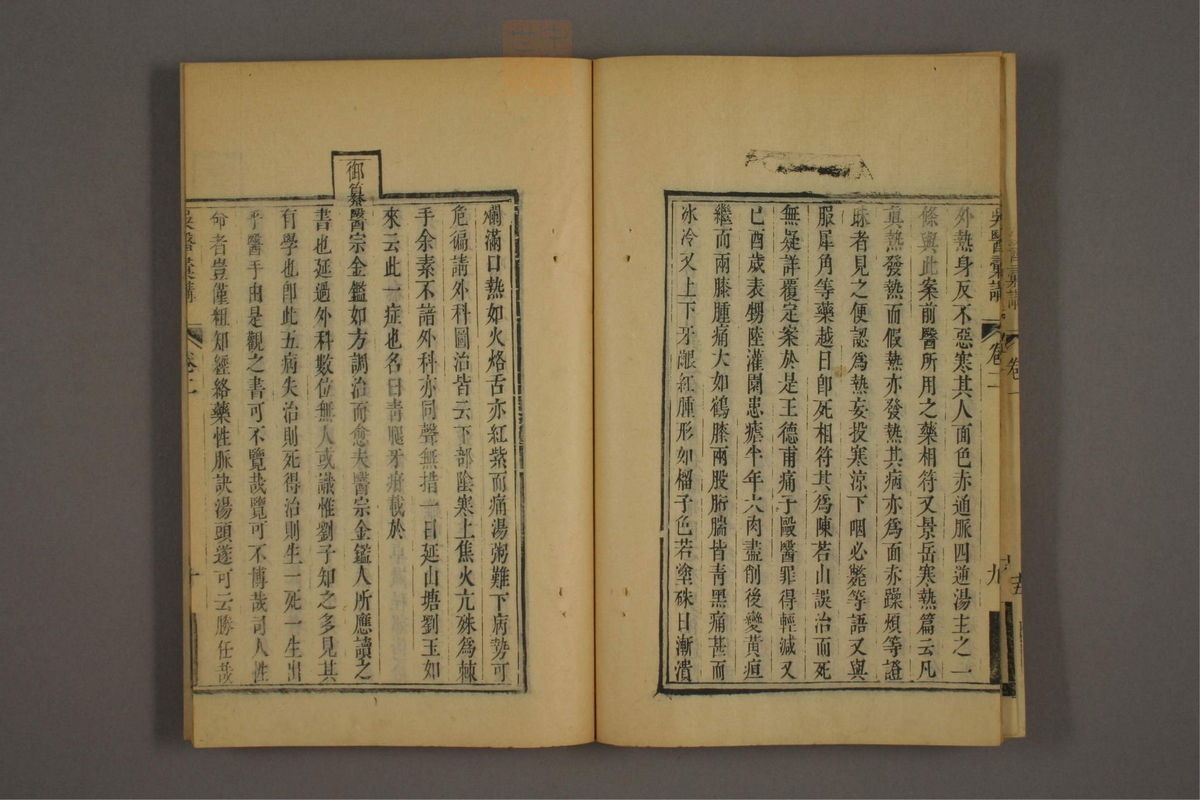 吳醫彙講
卷二
九
外熱身反不惡寒其人面色赤通脈四逆湯主之二
條與此案前醫所用之藥相符又景岳寒熱篇云凡
眞熱發熱而假熱亦發熱其病亦爲面赤躁煩等證
昧者見之便認爲熱妄投寒涼下咽必斃等語又與
服犀角等藥越日卽死相符其爲陳若山誤治而死
無疑詳覆定案於是王德甫痛子毆醫罪得輕減又
己酉歲表甥陸灌園患瘧半年大肉盡削後變黃疸
繼而兩膝腫痛大如鶴膝兩股䯒腨皆青黑痛甚而
冰冷又上下牙齦紅腫形如榴子色若塗硃日漸潰
爛滿口熱如火烙舌亦紅紫而痛湯粥難下病勢可
危徧請外科圖治皆云下部陰寒上焦火亢殊爲棘
手余素不諳外科亦同聲無措一日延山塘劉玉如
來云此一症也名曰青腿牙疳載於
御纂醫宗金鑑如方調治而愈夫醫宗金鑑人所應讀之
書也延過外科數位無人或識惟劉子知之多見其
有學也卽此五病失治則死得治則生一死一生出
乎醫手由是觀之書可不覽哉覽可不博哉司人性
命者豈僅粗知經絡藥性脈訣湯頭遂可云勝任哉
吳醫彙講
卷二
十